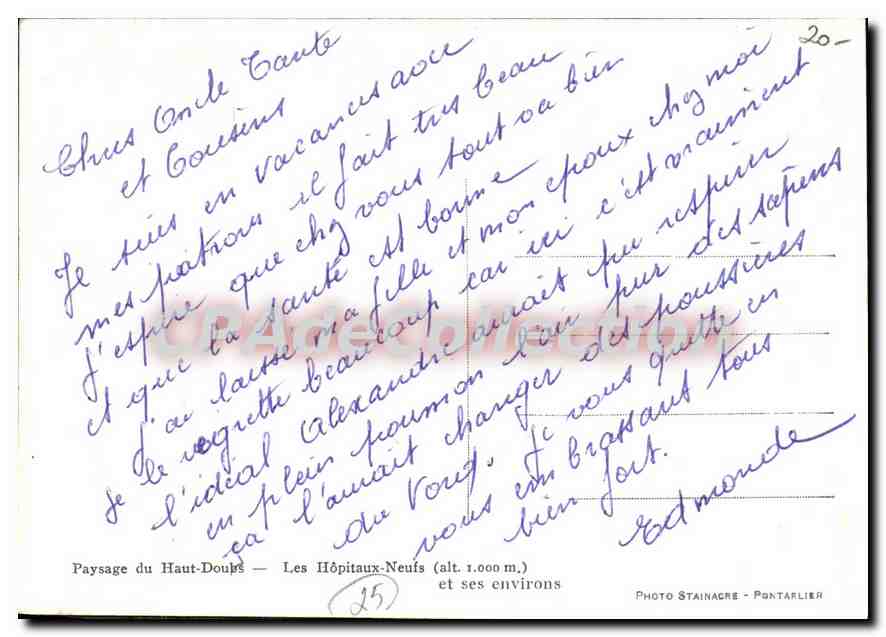 20-
Chers Oncle Tante
et Cousins
Je suis en vacances avec
mes patrons il fait tres beau
J'espère que chez vous tout va bien
et que la santé est bonne
j'ai laissé ma fille et mon epoux chez moi
je le regrette beaucoup car ici c'est vraiment
l'idéal Alexandre aurait pu respirer
en plein poumon l'air pur des sapins
ça l'aurait changer des poussières
du Je vous quitte en
vous embrassant tous
bien fort.
Edmonde
Paysage du Haut-Doubs — Les Hôpitaux-Neufs (alt. 1.000 m.)
et ses environs
25
PHOTO STAINACRE - PONTARLIER
CPAdeCollection